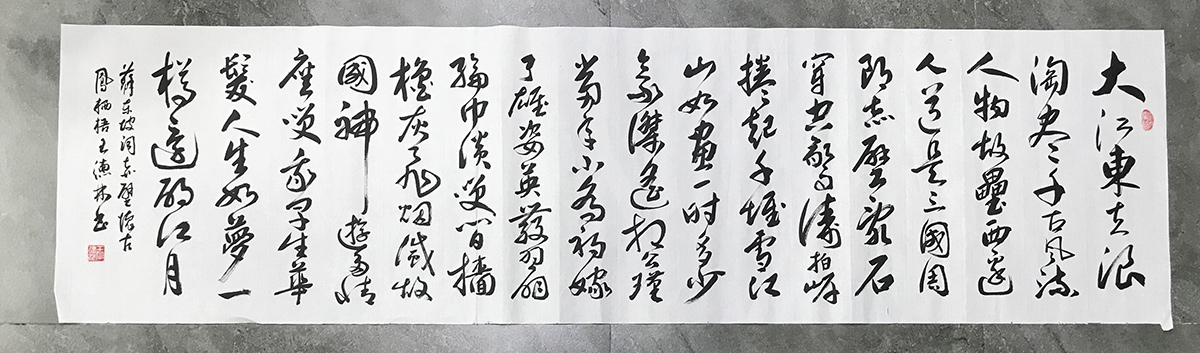 大江東去浪
淘尽千古风流
人物故壘西邊
人道是三國周
郎赤壁乱石
穿空驚涛拍岸
捲起千堆雪江
山如畫一时多少
豪傑遥想公瑾
當年小喬初嫁
了雄姿英發羽扇
綸巾談笑间檣
櫓灰飞烟滅故
國神遊多情
應笑我早生華
髮人生如夢一
樽還酹江月
蘇东坡词赤壁懷古
鳳栖梧王德林书